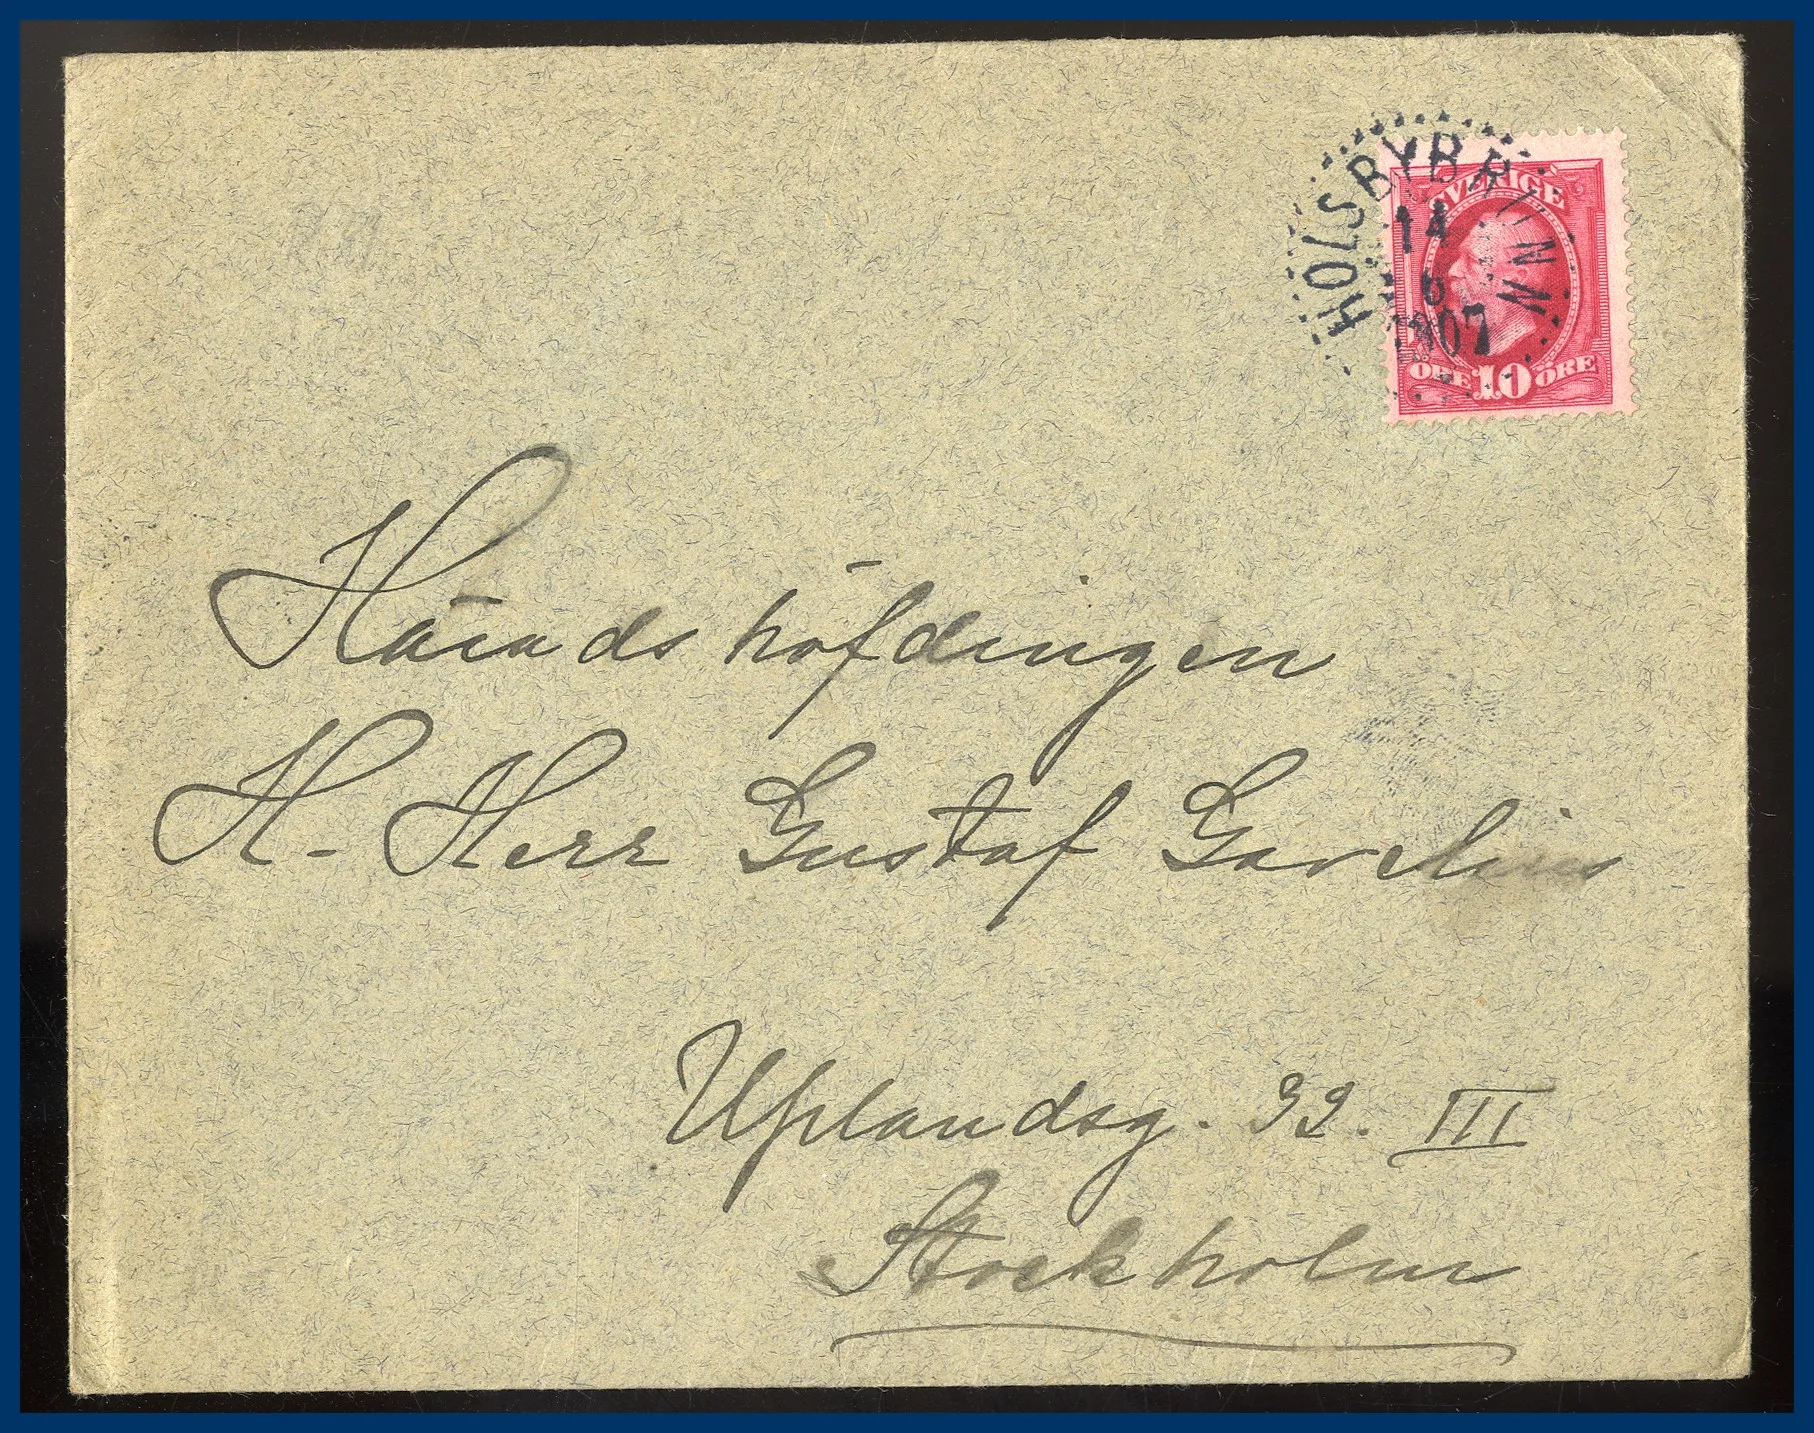 HOLSBYBRUNN
14
6
1907
SVERIGE
ÖRE 10 ÖRE
Häradshöfdingen
H. Herr Gustaf Gavelius
Uplandsg. 92. III
Stockholm